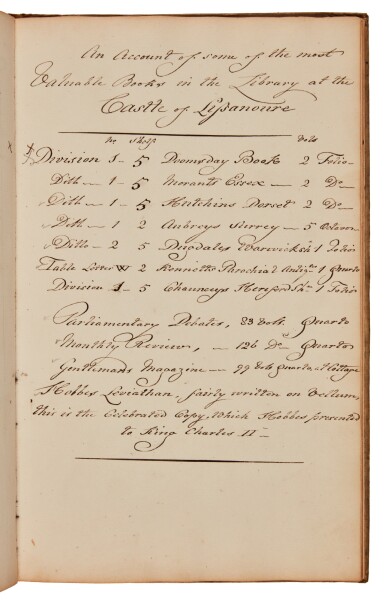 An Account of some of the most
Valuable Books in the Library at the
Castle of Lissanoure
No Shelf Vols
Division 1 - 5 Doomsday Book 2 Folio
Ditto - 1 - 5 Morants Essex - 2 Do
Ditto - 1 - 5 Hutchins Dorset 2 Do
Ditto - 1 2 Aubreys Surrey - 5 Octavo
Ditto - 2 5 Dugdales Warwicksh 1 Folio
Table Letter W 2 Kennetts Parochial Antiqs 1 Quarto
Division 1 - 5 Chauncys Hertfordsh - 1 Folio
Parliamentary Debates, 83 Vols. Quarto
Monthly Review, - 126 Do Quarto
Gentlemans Magazine - 99 Vols Quarto at Cottage
Hobbes Leviathan, fairly written on Vellum,
this is the Celebrated Copy which Hobbes presented
to King Charles II -